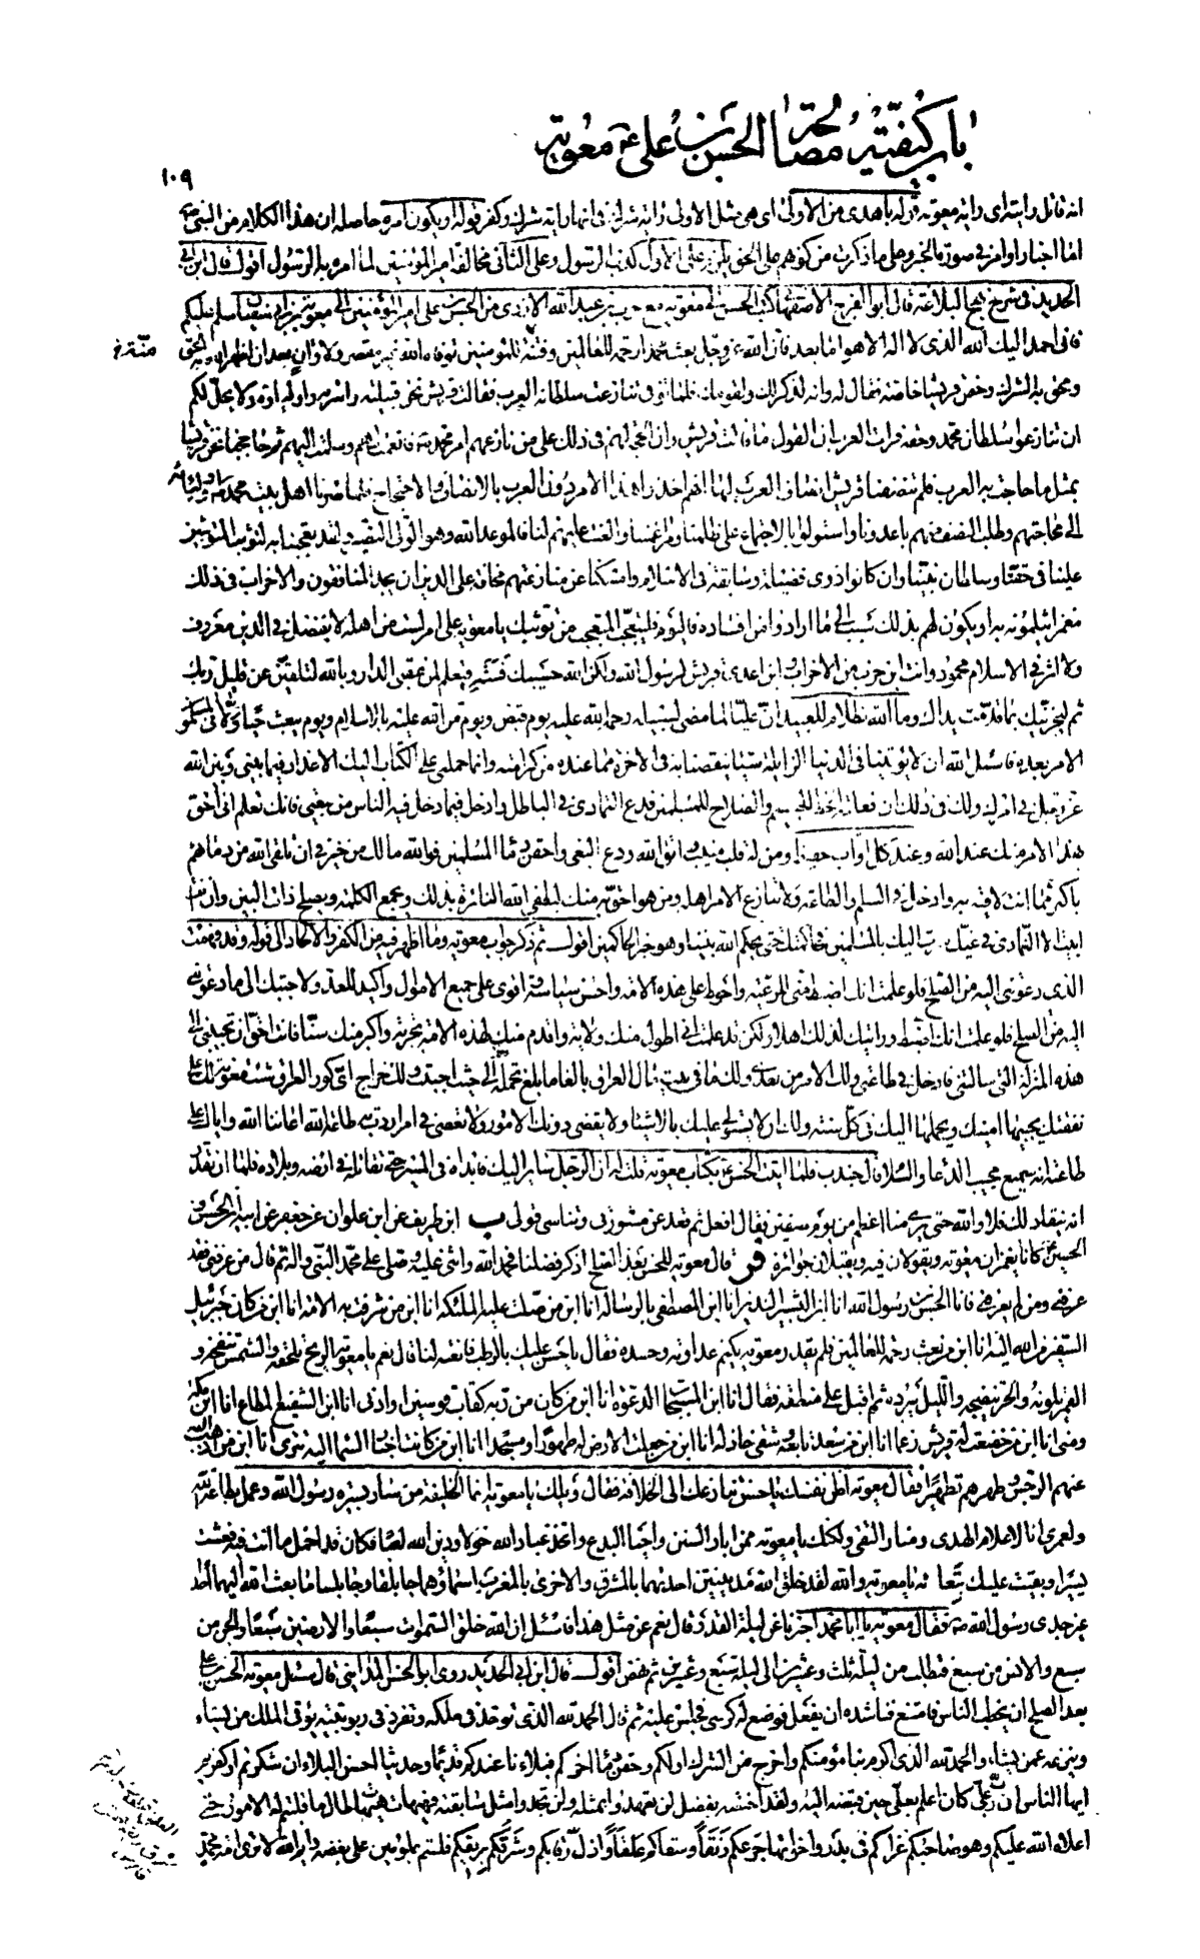 باب كيفية مصالحة الحسن بن علي ع معوية
١٠٩
انه قاتل راية اى راية معوية قوله باهدى من الاولى اى هى مثل الاولى راية شرك فى انها راية شرك وكفر قوله او يكون امره حاصله ان هذا الكلام من النبى ص
اما اخبار او امر فى صورة الخبر وعلى ما ذكرت من كونهم على الحق يلزم على الاول كذب الرسول وعلى الثانى مخالفة امير المؤمنين لما امره به الرسول اقول قال ابن ابى
الحديد فى شرح نهج البلاغة قال ابو الفرج الاصفهانى كتب الحسن الى معوية مع جندب بن عبد الله الازدى من الحسن بن على امير المؤمنين الى معوية بن ابى سفيان سلام عليكم
فانى احمد اليك الله الذى لا اله الا هو اما بعد فان الله عز وجل بعث محمدا رحمة للعالمين ومنة للمؤمنين توفاه الله غير مقصر ولا وان بعد ان اظهر الله به الحق
ومحق به الشرك وخص قريشا خاصة فقال له وانه لذكر لك ولقومك فلما توفى تنازعت سلطانه العرب فقالت قريش نحن قبيلته واسرته واولياؤه ولا يحل لكم
ان تنازعوا سلطان محمد وحقه فرات العرب ان القول ما قالت قريش وان الحجة لهم فى ذلك على من نازعهم امر محمد ص فانعمت لهم وسلمت اليهم ثم حاججنا نحن قريشا
بمثل ما حاجت به العرب فلم تنصفنا قريش انصاف العرب لها انهم اخذوا هذا الامر دون العرب بالانصاف والاحتجاج فلما صرنا اهل بيت محمد ص واوليائه
الى محاجتهم وطلب النصف منهم باعدونا واستولوا بالاجتماع على ظلمنا ومراغمتنا والعنت منهم لنا فالموعد الله وهو الولى النصير ولقد تعجبنا لتوثب المتوثبين
علينا فى حقنا وسلطان نبينا وان كانوا ذوى فضيلة وسابقة فى الاسلام وامسكنا عن منازعتهم مخافة على الدين ان يجد المنافقون والاحزاب فى ذلك
مغمزا يثلمونه به او يكون لهم بذلك سبب الى ما ارادوا من افساده فاليوم فليتعجب المتعجب من توثبك يا معوية على امر لست من اهله لا بفضل فى الدين معروف
ولا اثر فى الاسلام محمود وانت ابن حزب من الاحزاب وابن اعدى قريش لرسول الله ولكن الله حسيبك فسترد فتعلم لمن عقبى الدار وبالله لتلقين عن قليل ربك
ثم ليجزينك بما قدمت يداك وما الله بظلام للعبيد ان عليا لما مضى لسبيله رحمة الله عليه يوم قبض ويوم من الله عليه بالاسلام ويوم يبعث حيا ولانى المسلمون
الامر بعده فاسئل الله ان لا يؤتينا فى الدنيا الزايلة شيئا ينقصنا به فى الاخرة مما عنده من كرامته وانما حملنى على الكتاب اليك الاعذار فيما بينى وبين الله
عز وجل فى امرك ولك فى ذلك ان فعلته الحظ الجسيم والصلاح للمسلمين فدع التمادى فى الباطل وادخل فيما دخل فيه الناس من بيعتى فانك تعلم انى احق
بهذا الامر منك عند الله وعند كل اواب حفيظ ومن له قلب منيب اتق الله ودع البغى واحقن دماء المسلمين فوالله مالك من خير فى ان تلقى الله من دمائهم
باكثر مما انت لاقيه به وادخل فى السلم والطاعة ولا تنازع الامر اهله ومن هو احق به منك ليطفى الله النائرة بذلك ويجمع الكلمة ويصلح ذات البين وان انت
ابيت الا التمادى فى غيك سرت اليك بالمسلمين فحاكمتك حتى يحكم الله بيننا وهو خير الحاكمين اقول ثم ذكر جواب معوية وما اظهر فيه من الكفر والالحاد الى قوله وقد فهمت
الذى دعوتنى اليه من الصلح فلو علمت انك اضبط منى للرعية واحوط على هذه الامة واحسن سياسة واقوى على جمع الاموال واكيد للعدو لاجبتك الى ما دعوتنى
اليه من الصلح فلو علمت انك اضبط ورايتك لذلك اهلا ولكن قد علمت انى اطول منك ولاية واقدم منك لهذه الامة تجربة واكبر منك سنا فانت احق ان تجيبنى الى
هذه المنزلة التى سالتنى فادخل فى طاعتى ولك الامر من بعدى ولك ما فى بيت مال العراق بالغا ما بلغ تحمله الى حيث احببت ولك خراج اى كور العراق شئت معونة لك على
نفقتك يجبيها امينك ويحملها اليك فى كل سنة ولك ان لا يستولى عليك بالاشياء ولا يقضى دونك الامور ولا تعصى فى امر اردت به طاعة الله اعاننا الله واياك على
طاعته انه سميع مجيب الدعاء والسلام قال جندب فلما اتيت الحسن ع بكتاب معوية قلت له ان الرجل سائر اليك فابداه فى المسير حتى تقاتله فى ارضه وبلاده فلما ان تقدر
انه ينقاد لك فلا والله حتى يرى منا اعظم من يوم صفين فقال افعل ثم قعد عن مشورتى وتناسى قولى ب ابن طريف عن ابن علوان عن جعفر عن ابيه ان الحسن و
الحسين ع كانا يغمزان معوية ويقولان فيه ويقبلان جوائزه ق قال معوية للحسن بعد الصلح اذكر فضلنا فحمد الله واثنى عليه وصلى على محمد النبى واله ثم قال من عرفنى فقد
عرفنى ومن لم يعرفنى فانا الحسن بن رسول الله انا ابن البشير النذير انا ابن المصطفى بالرسالة انا ابن من صلت عليه الملئكة انا ابن من شرفت به الامة انا ابن من كان جبرئيل
السفير من الله اليه انا ابن من بعث رحمة للعالمين فلم يقدر معوية يكتم عداوته وحسده فقال يا حسن عليك بالرطب فانعته لنا قال نعم يا معوية الريح تلقحه والشمس تنفخه و
القمر يلونه والحر ينضجه والليل يبرده ثم اقبل على منطقه فقال انا ابن المستجاب الدعوة انا ابن من كان من ربه كقاب قوسين او ادنى انا ابن الشفيع المطاع انا ابن مكة
ومنى انا ابن من خضعت له قريش رغما انا ابن من سعد تابعه وشقى خاذله انا ابن من جعلت الارض له طهورا ومسجدا انا ابن من كانت اخبار السماء اليه تترى انا ابن من اذهب الله
عنهم الرجس وطهرهم تطهيرا فقال معوية اظن نفسك يا حسن تنازعك الى الخلافة فقال ويلك يا معوية انما الخليفة من سار بسيرة رسول الله وعمل بطاعة الله
ولعمرى انا لاعلام الهدى ومنار التقى ولكنك يا معوية ممن ابار السنن واحيا البدع واتخذ عباد الله خولا ودين الله لعبا فكان قد اخمل ما انت فيه فعشت
يسيرا وبقيت عليك تبعاته يا معوية والله لقد خلق الله مدينتين احدهما بالمشرق والاخرى بالمغرب اسماؤهما جابلقا وجابلسا ما بعث الله اليهما احدا
غير جدى رسول الله ص فقال معوية يا ابا محمد اخبرنا عن ليلة القدر قال نعم عن مثل هذا فاسئل ان الله خلق السموات سبعا والارضين سبعا والجن من
سبع والانس من سبع فتطلب من ليلة ثلث وعشرين الى ليلة سبع وعشرين ثم نهض اقول قال ابن ابى الحديد روى ابو الحسن المداينى قال سئل معوية الحسن بن على
بعد الصلح ان يخطب الناس فامتنع فناشده ان يفعل فوضع له كرسى فجلس عليه ثم قال الحمد لله الذى توحد فى ملكه وتفرد فى ربوبيته يؤتى الملك من يشاء
وينزعه عمن يشاء والحمد لله الذى اكرم بنا مؤمنكم واخرج من الشرك اولكم وحقن دماء اخركم فبلاءنا عندكم قديما وحديثا احسن البلاء ان شكرتم او كفرتم
ايها الناس ان رب على كان اعلم بعلى حين قبضه اليه ولقد اختصه بفضل لن تعهدوا بمثله ولن تجدوا مثل سابقته فهيهات هيهات طالما قلبتم له الامور حتى
اعلاه الله عليكم وهو صاحبكم غزاكم فى بدر واخواتها جرعكم رنقا وسقاكم علقا واذل رقابكم وشرقكم بريقكم فلستم بملومين على بغضه وايم الله لا ترى امة محمد